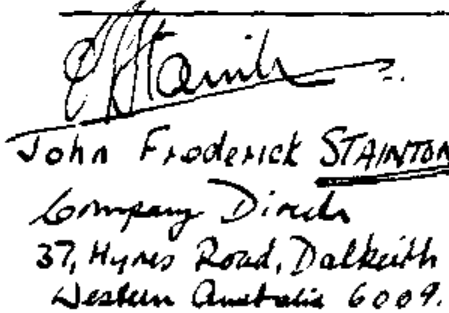 John Frederick STAINTON
Company Director
37, Hynes Road, Dalkeith
Western Australia 6009.